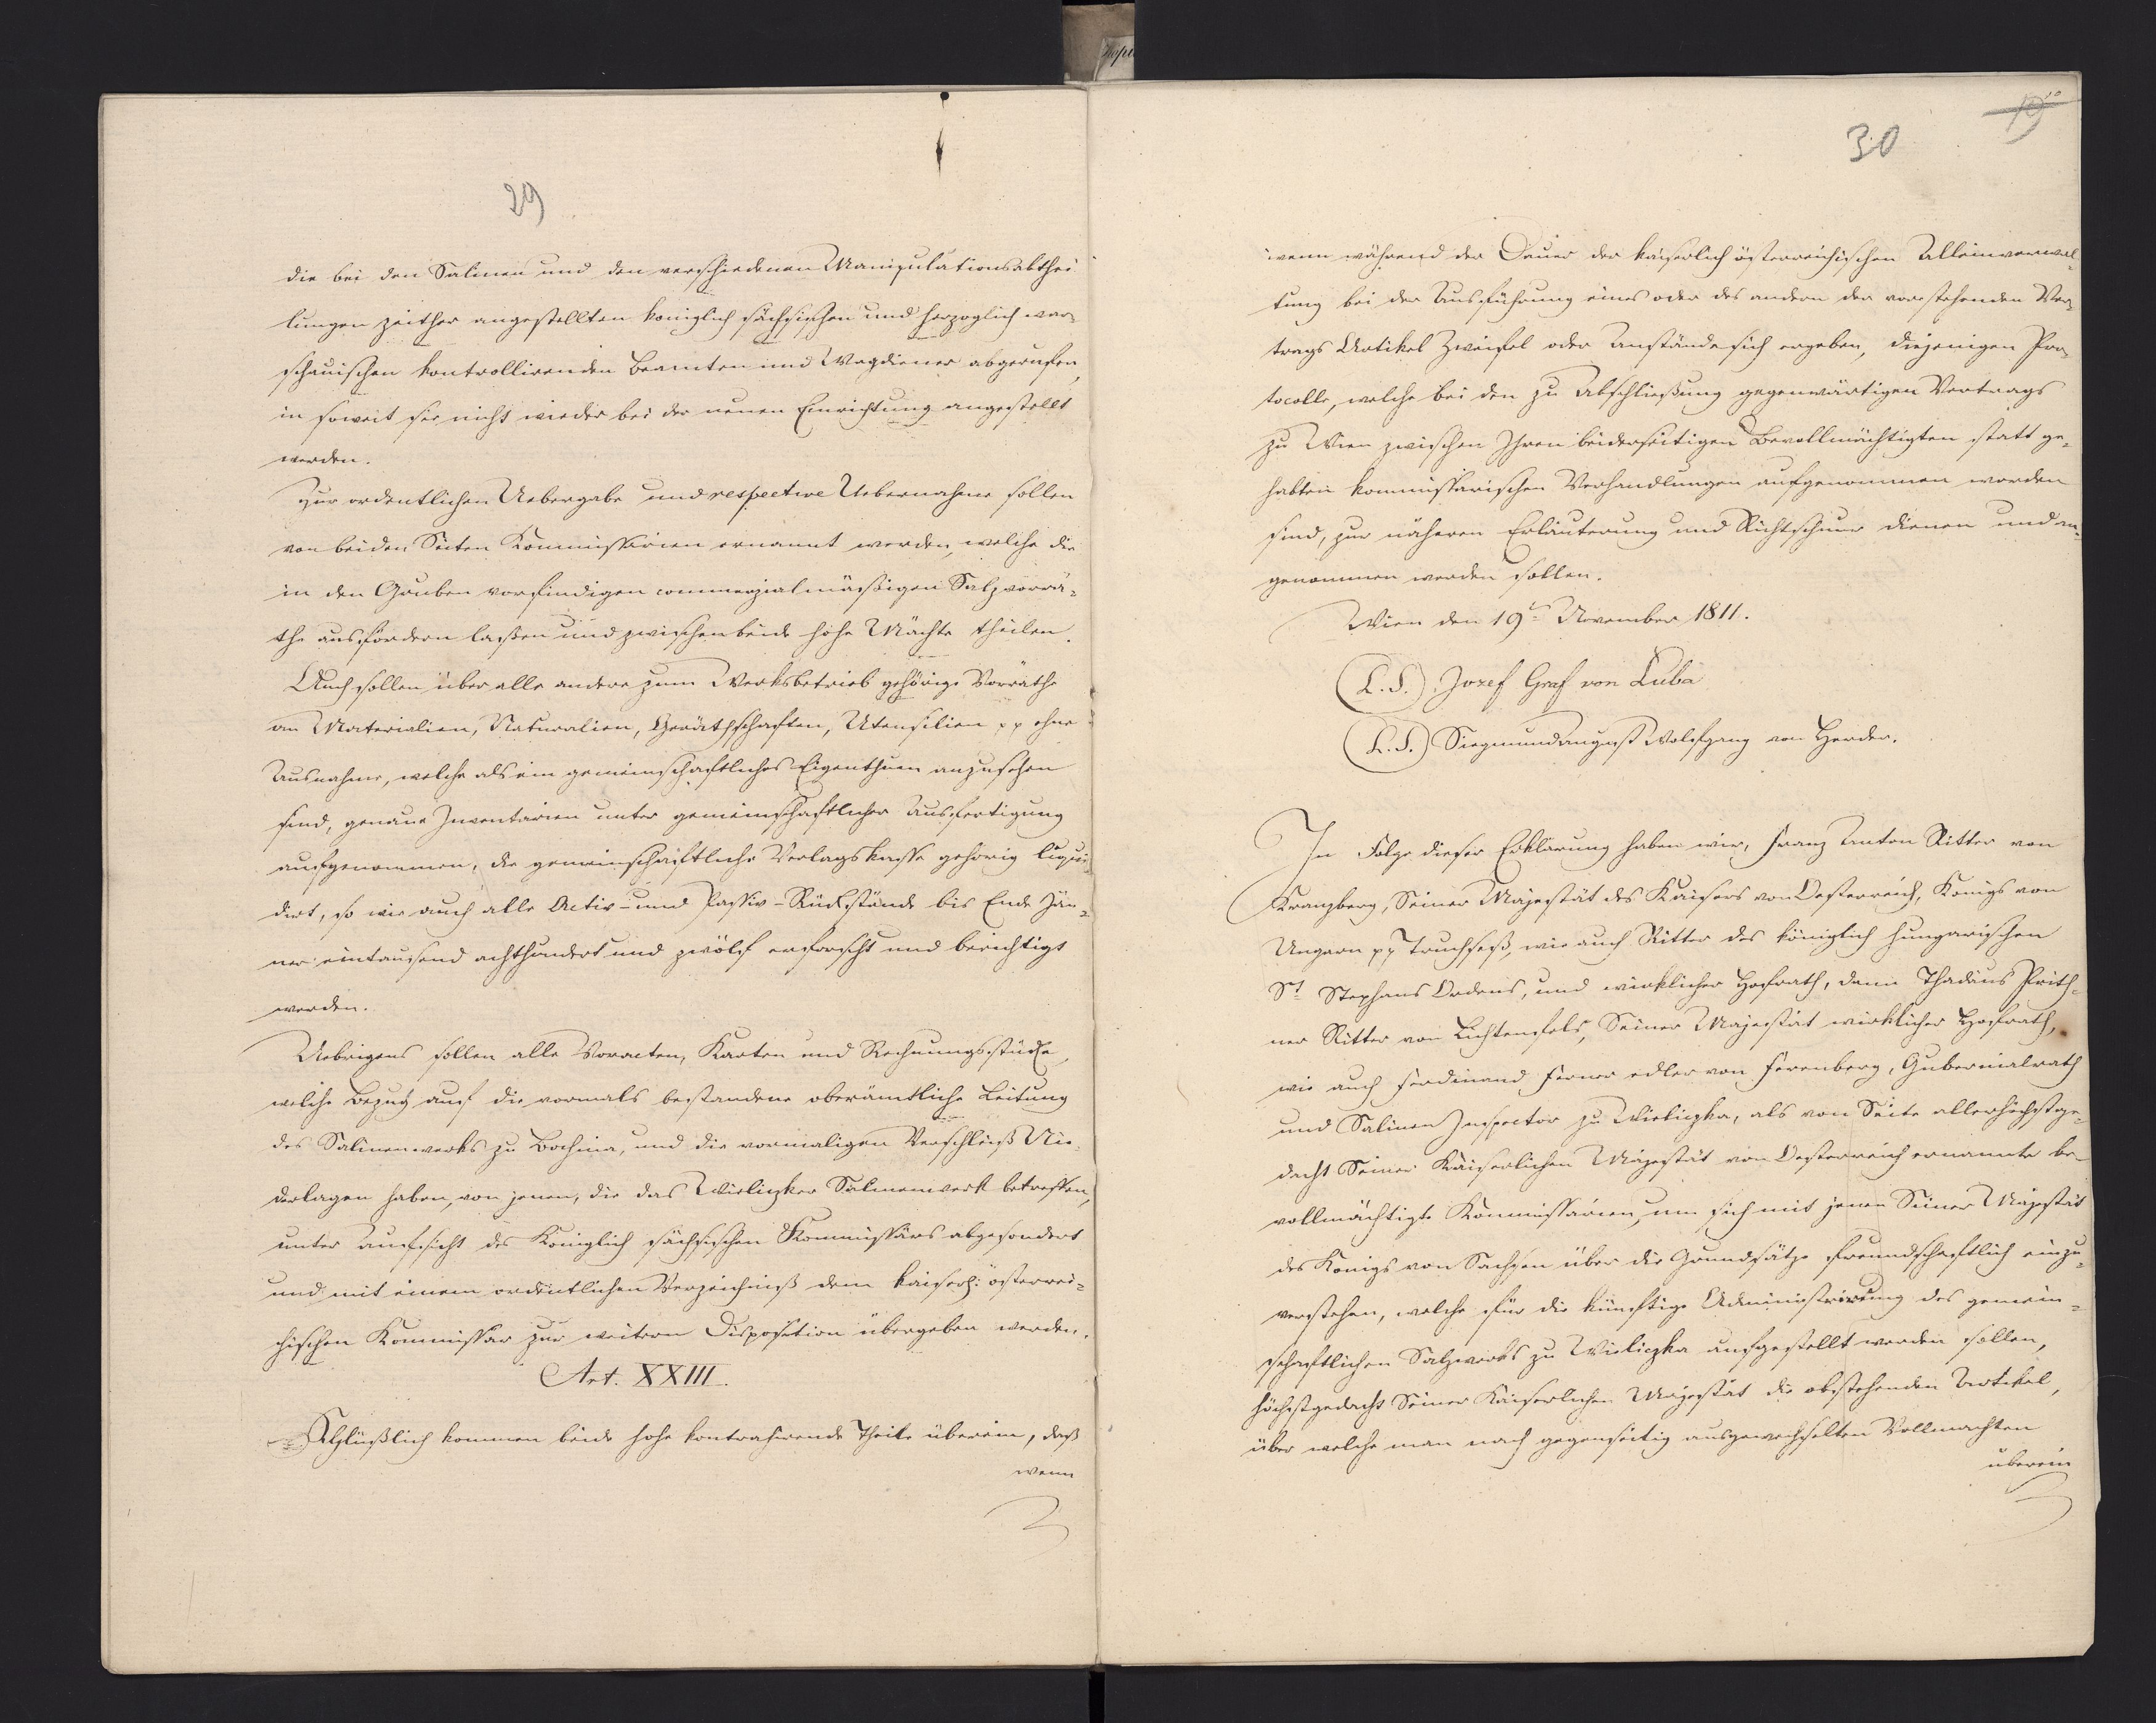 29
die bei den Salinen und den verschiedenen Manipulationsabthei
lungen zeither angestellten königlich sächsischen und herzoglich war¬
schauischen kontrollirenden Beamten und Wagdiener abgerufen,
in soweit sie nicht wieder bei der neuen Einrichtung angestellt
werden.
Zur ordentlichen Uebergabe und respective Uebernahme sollen
von beiden Seiten Kommissarien ernannt werden, welche die
in den Gruben vorfindigen commerzialmäßigen Salzvorrä¬
the ausfördern laßen und zwischen beide hohe Mächte theilen.
Auch sollen über alle andere zum Werksbetrieb gehörige Vorräthe
an Materialien, Naturalien, Geräthschaften, Utensilien pp ohne
Ausnahme, welche als ein gemeinschaftliches Eigenthum anzusehen
sind, genaue Inventarien unter gemeinschaftlicher Ausfertigung
aufgenommen, die gemeinschaftliche Verlagskasse gehörig liqui¬
dirt, so wie auch alle Activ- und Passiv-Rückstände bis Ende Jän¬
ner eintausend achthundert und zwölf erforscht und berichtigt
werden.
Uebrigens sollen alle Voracten, Karten und Rechnungsstücke,
welche Bezug auf die vormals bestandene oberämtliche Leitung
des Salinenwerks zu Bochnia, und die vormaligen Verschleiß Nie¬
derlagen haben, von jenen, die das Wieliczker Salinenwerk betreffen,
unter Aufsicht des Königlich sächsischen Kommissärs abgesondert
und mit einem ordentlichen Verzeichniß dem kaiserl: österrei¬
chischen Kommissär zur weitern Disposition übergeben werden.
Art. XXIII.
Schlüßlich kommen beide hohe kontrahirende Theile überein, daß
wenn
19
30
wenn während der Dauer der kaiserlich österreichischen Alleinverwal¬
tung bei der Ausführung eines oder des andern der vorstehenden Ver¬
trags Artikel Zweifel oder Anstände sich ergeben, diejenigen Pro¬
tocolle, welche bei den zu Abschließung gegenwärtigen Vertrags
zu Wien zwischen Ihren beiderseitigen Bevollmächtigten statt ge¬
habten kommissarischen Verhandlungen aufgenommen worden
sind, zur näheren Erläuterung und Richtschnur dienen und an¬
genommen werden sollen.
Wien den 19t November 1811.
(L.S.) Jozef Graf von Łuba
(L.S.) Siegmund August Wolfgang von Herder.
In Folge dieser Erklärung haben wir, Franz Anton Ritter von
Kranzberg, Seiner Majestät des Kaisers von Oesterreich, Königs von
Ungarn pp Truchseß, wie auch Ritter des königlich hungarischen
St Stephans Ordens, und wirklicher Hofrath, dann Thadäus Peith¬
ner Ritter von Lichtenfels, Seiner Majestät wirklicher Hofrath,
wie auch Ferdinand Ferner edler von Fernberg, Gubernialrath
und Salinen Inspector zu Wieliczka, als von Seite allerhöchstge¬
dacht Seiner Kaiserlichen Majestät von Oesterreich ernannte be¬
vollmächtigte Kommissarien, um sich mit jenen Seiner Majestät
des Königs von Sachsen über die Grundsätze freundschaftlich einzu¬
verstehen, welche für die künftige Administrirung des gemein¬
schaftlichen Salzwerks zu Wieliczka aufgestellt werden sollen,
höchstgedacht Seiner Kaiserlichen Majestät die obstehenden Artikel,
über welche man nach gegenseitig ausgewechselten Vollmachten
überein